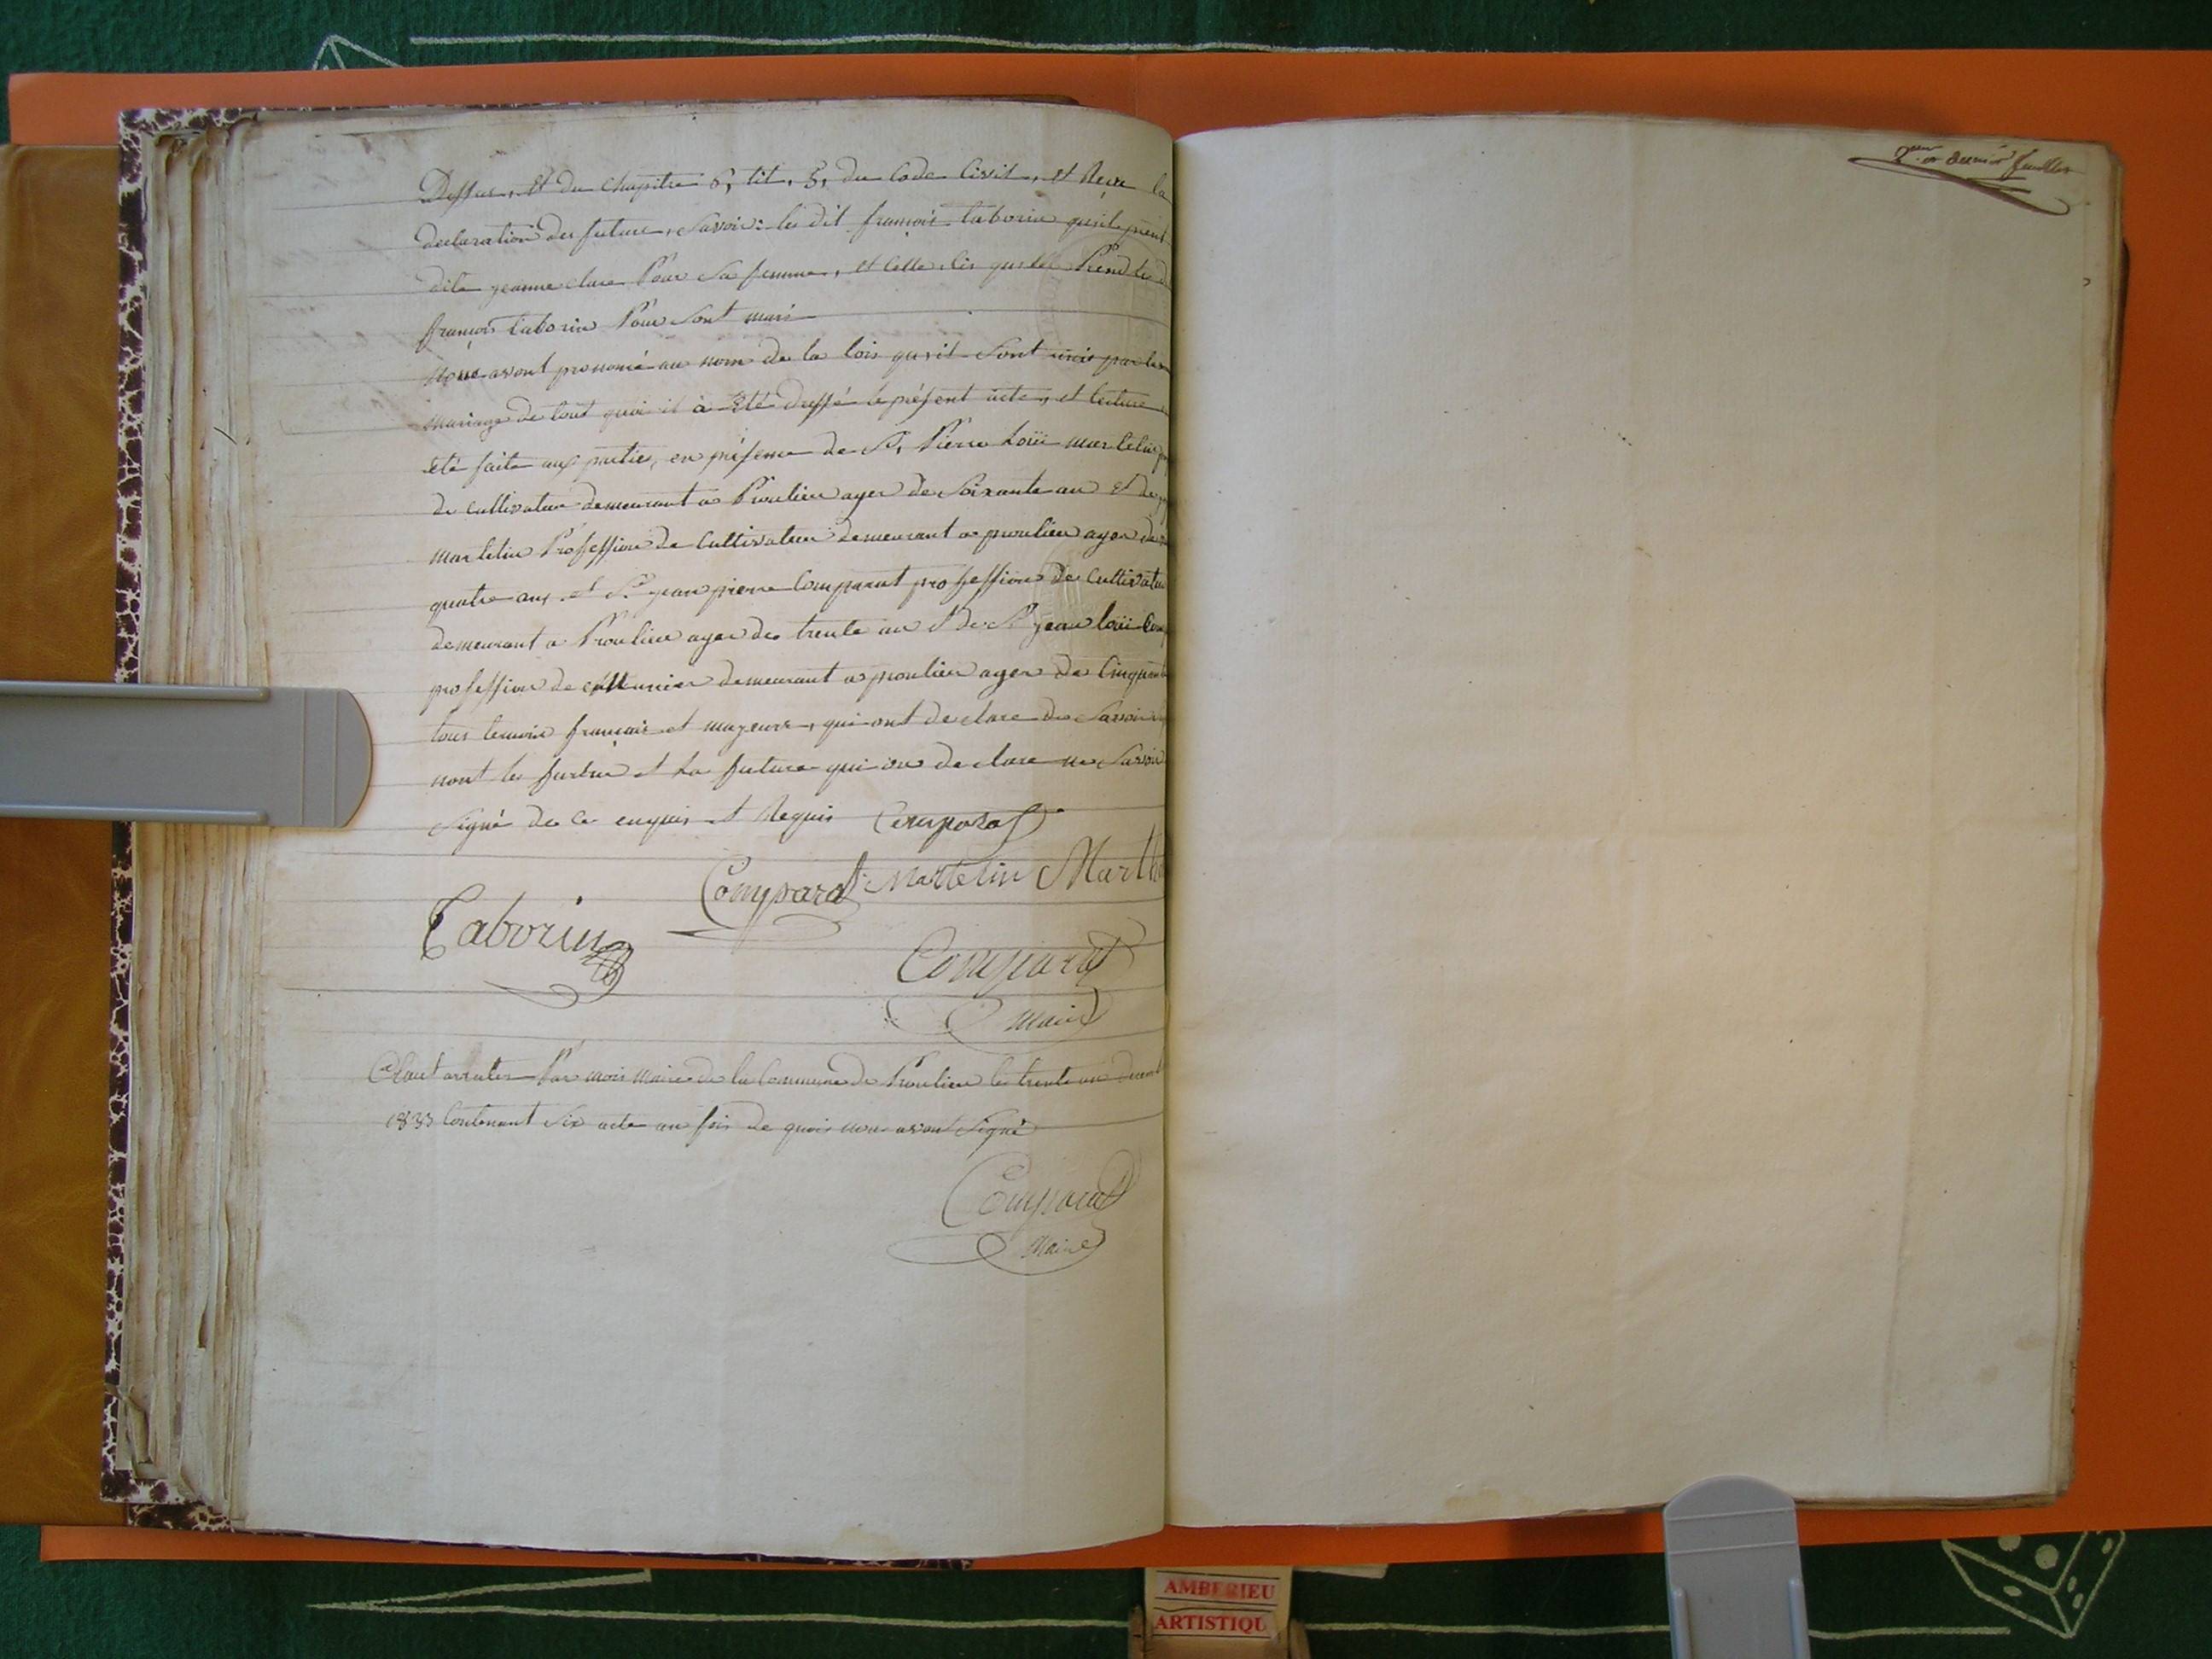 Dessus, Et du Chapitre 6, tit, 5, du Code Civil, et Reçu la
declaration des future, Savoir: le dit françois taborin qu'il prent
dite jeanne clare Pour Sa femme, et Celle cis quelle Prend le d
françois taborin Pour Sont mari
Nous avont prononcé au nom de la lois qu'il Sont unis par le
mariage de tout quoi il à Eté dressé le présent acte, et lecture
été faite aux partie, en présence de Sr. Pierre Loüi martelin
de Cultivateur demeurant a Proulieu ager de Soixante an Et de
martelin Profession de Cultivateur demeurant a proulieu ager de
quatre ans et Sr jean pierre Comparat profession de Cultivateur
demeurant a Proulieu ager de trente an et De Sr jean loüi Com
profession de demeurant a proulieu ager de Cinquante
tous temoin français et mageurs, qui ont declare de Savoir
nont le furtur et La future qui on declare ne Savoir
Signé de Ce enquis et Requis Comparat
Comparat Martelin Marte
Taborin
Comparat
Maire
Clout arreter Par mois Maire de la Commune de Proulieu le trente un decemb
1833 Contenant Six acte an fois de quois nous avont Signé
Comparat
Maire
2eme et dernier feuillet
AMBERIEU
ARTISTIQU